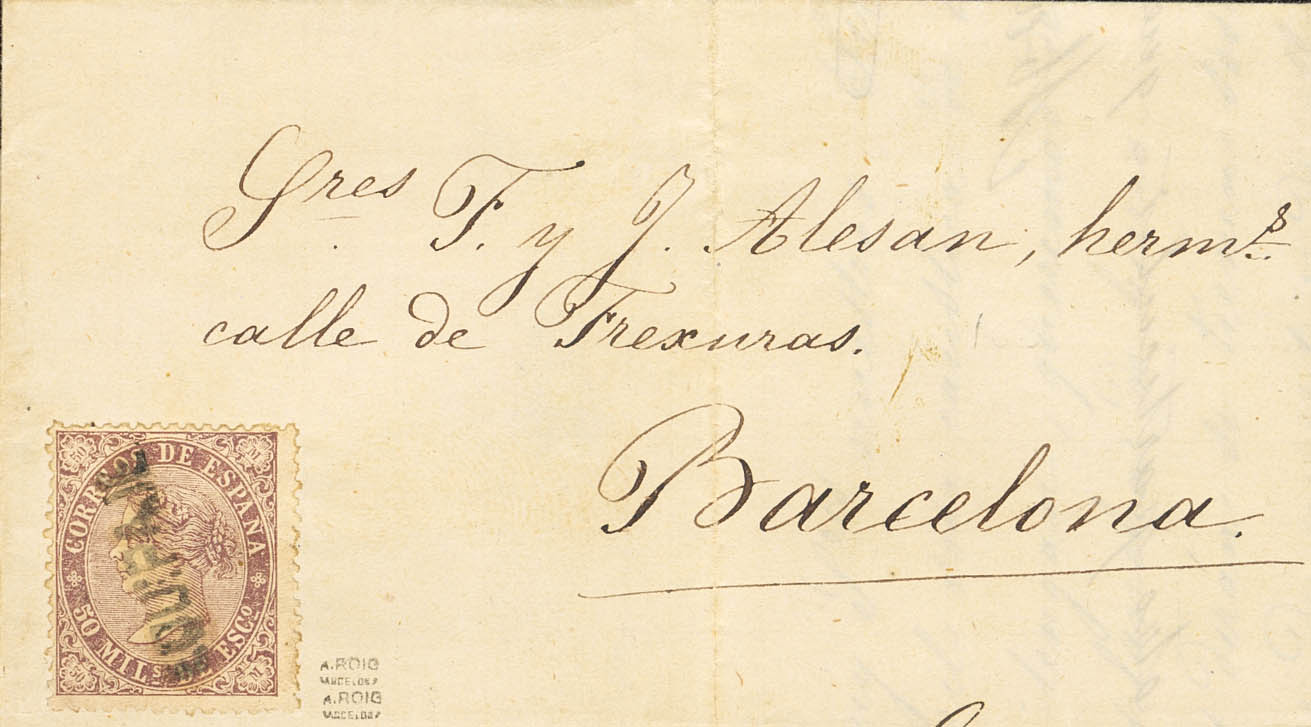 Sres F. y J. Alesan, herms.
calle de Frexuras.
Barcelona.
CORREOS DE ESPAÑA
50 MILS DE ESCO.
50 M
50 M
A.ROIG
BARCELONA
A.ROIG
BARCELONA